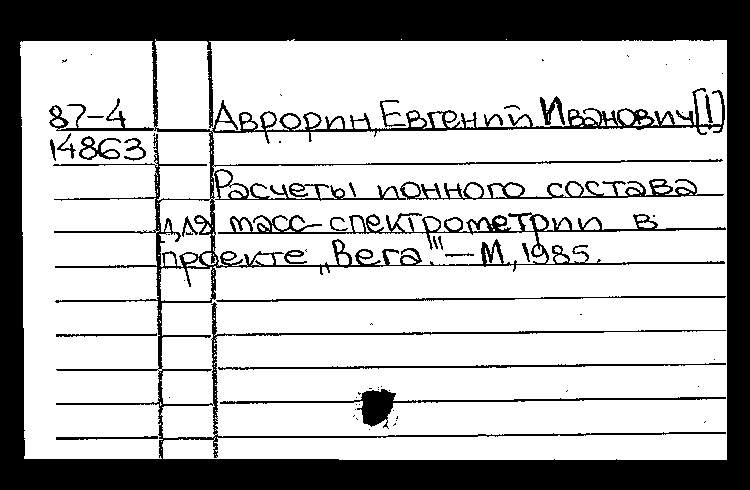 87-4 Аврорин, Евгений Иванович [!]
14863
Расчеты ионного состава
для масс-спектрометрии в
проекте „Вега"! — М, 1985.